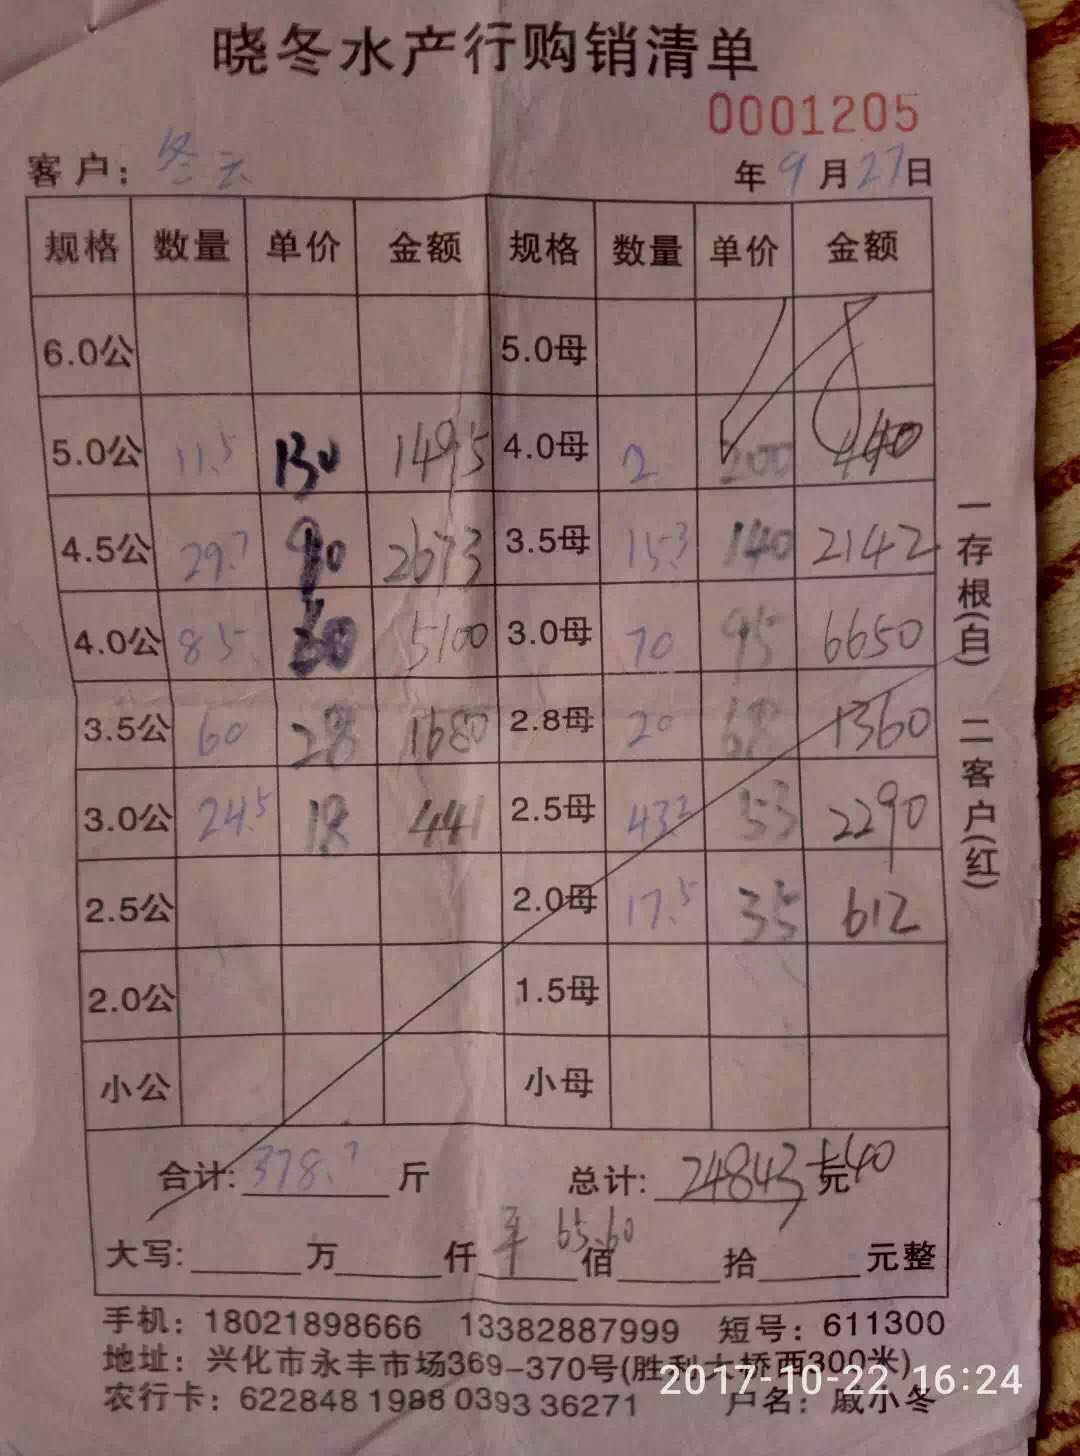 晓冬水产行购销清单
0001205
客户: 冬云 年9月27日
规格 数量 单价 金额 规格 数量 单价 金额
6.0公 5.0母
5.0公 11.5 130 1495 4.0母 2 200 440
4.5公 29.7 90 2673 3.5母 15.3 140 2142
4.0公 85 60 5100 3.0母 70 95 6650
3.5公 60 28 1680 2.8母 20 68 1360
3.0公 24.5 18 441 2.5母 43.2 53 2290
2.5公 2.0母 17.5 35 612
2.0公 1.5母
小公 小母
合计: 378.7 斤 总计: 24843 元
平 65.60
大写: 万 仟 佰 拾 元整
一存根(白) 二客户(红)
手机: 18021898666 13382887999 短号: 611300
地址: 兴化市永丰市场369-370号(胜利大桥西300米)
农行卡: 622848 1988 0393 36271 户名: 戚小冬
2017-10-22 16:24